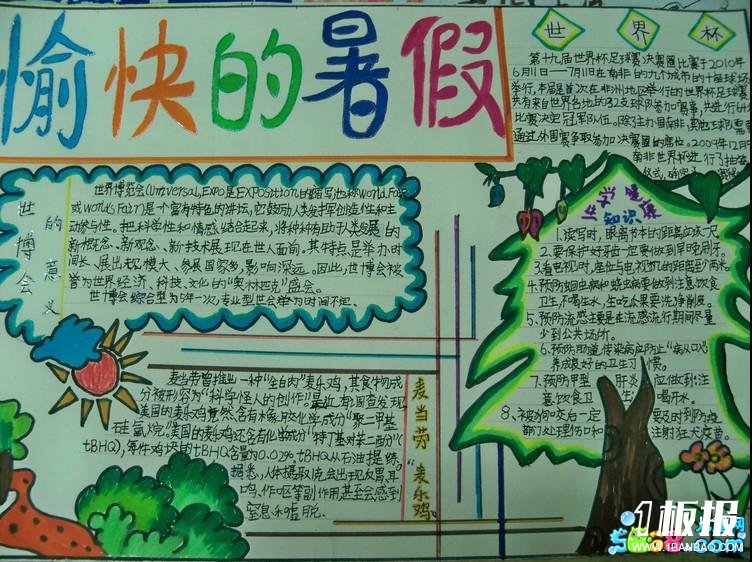 愉快的暑假
世界杯
第十九届世界杯足球赛决赛圈比赛于2010年
6月11日—7月11日在南非的九个城市的十座球场
举行,本届是首次在非洲地区举行的世界杯足球赛
共有来自世界各地的32支球队参加赛事,共进行64
比赛决定冠军队伍。除主办国南非,其他球队需
通过外围赛争取参加决赛圈的席位。2009年12月
南非世界杯进行了抽签
仪式,
世博会的意义
世界博览会(Universal,EXPO是EXPOsition的缩写,也称World Fair
或World's Fair)是个富有特色的讲坛,它鼓励人类发挥创造性和主
动参与性。把科学性和情感结合起来,将种种有助于人类发展的
新概念、新观念、新技术展现在世人面前。其特点是举办时
间长、展出规模大、参展国家多,影响深远。因此,世博会被
誉为世界经济、科技、文化的“奥林匹克”盛会。
世博会综合型为5年一次,专业型世会举办时间不定。
生活健康
知识
1.读写时,眼离书本的距离应该一尺
2.要保护好牙齿一定要做到早晚刷牙。
3.看电视时,座位与电视机的距离至少两米
4.预防蛔虫病和蛲虫病要做到注意饮食
卫生不喝生水,生吃瓜果要洗净削皮。
5、预防流感主要是在流感流行期间尽量
少到公共场所。
6.预防肠道传染病应防止“病从口入
养成良好的卫生习惯。
7、预防甲型肝炎应做到:注
意饮食卫生 喝开水。
8、被狗咬后一定要及时到防疫
部门处理伤口和注射狂犬疫苗。
麦当劳“麦乐鸡”
麦当劳曾推出一种“全白肉”麦乐鸡,其食物成
分被形容为“科学怪人的创作!”最近有调查发现
美国的麦乐鸡竟然含有橡胶化学成分“聚二甲基
硅氧烷。”美国的麦乐鸡还含有化学成分“特丁基对苯二酚”(
tBHQ),每件鸡块的tBHQ含量为0.02%。tBHQ从石油提练。
据悉,人体摄取1克会出现反胃、耳
鸣、作呕等副作用,甚至会感到
窒息和虚脱。
1板报
WWW.1BANBAO.COM
.com